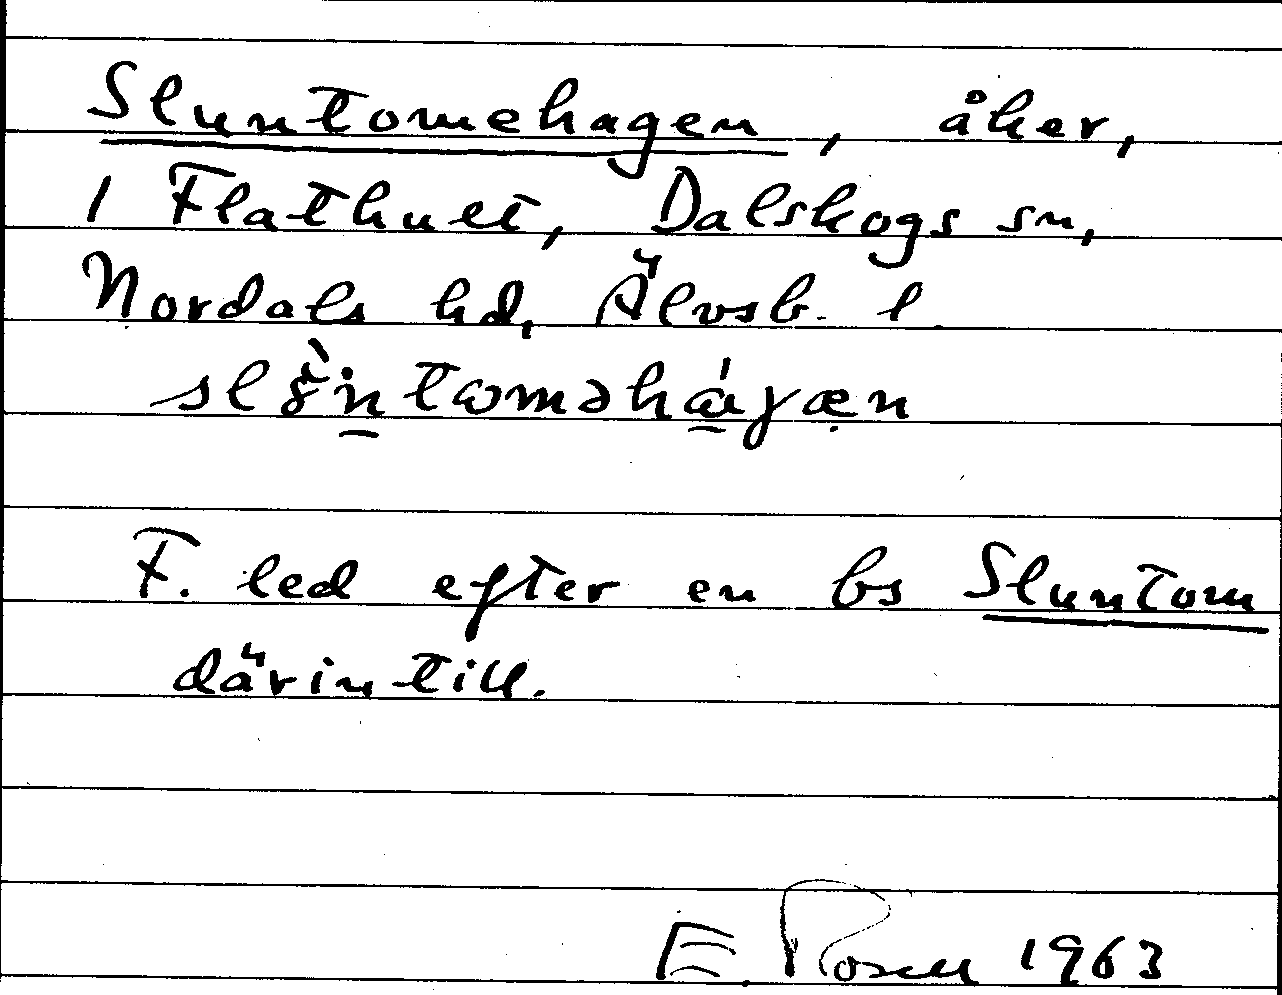 Sluntomehagen, åker,
1 Flathult, Dalskogs sn,
Nordals hd, Älvsb. l.
F. led efter en bs Sluntom
därintill.
E. Rosell 1963